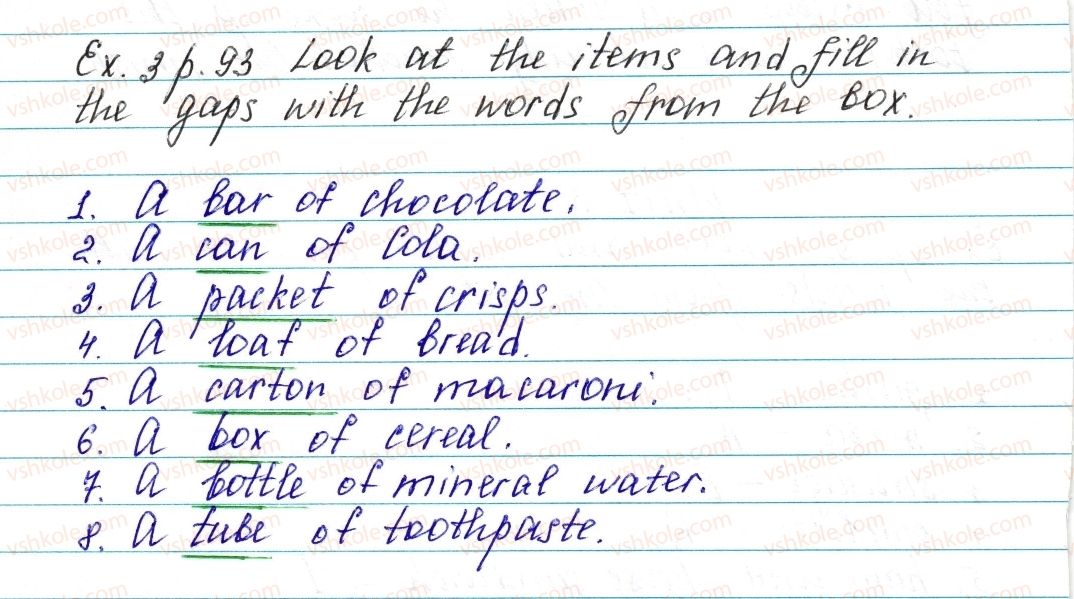 Ex. 3 p. 93 Look at the items and fill in
the gaps with the words from the box.
1. A bar of chocolate.
2. A can of Cola.
3. A packet of crisps.
4. A loaf of bread.
5. A carton of macaroni.
6. A box of cereal.
7. A bottle of mineral water.
8. A tube of toothpaste.
vshkole.com